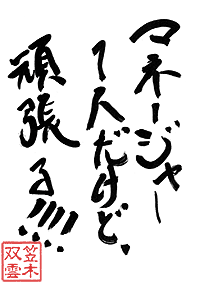 マネージャー
1人だけど、
頑張る!!!!
笠木
双雲